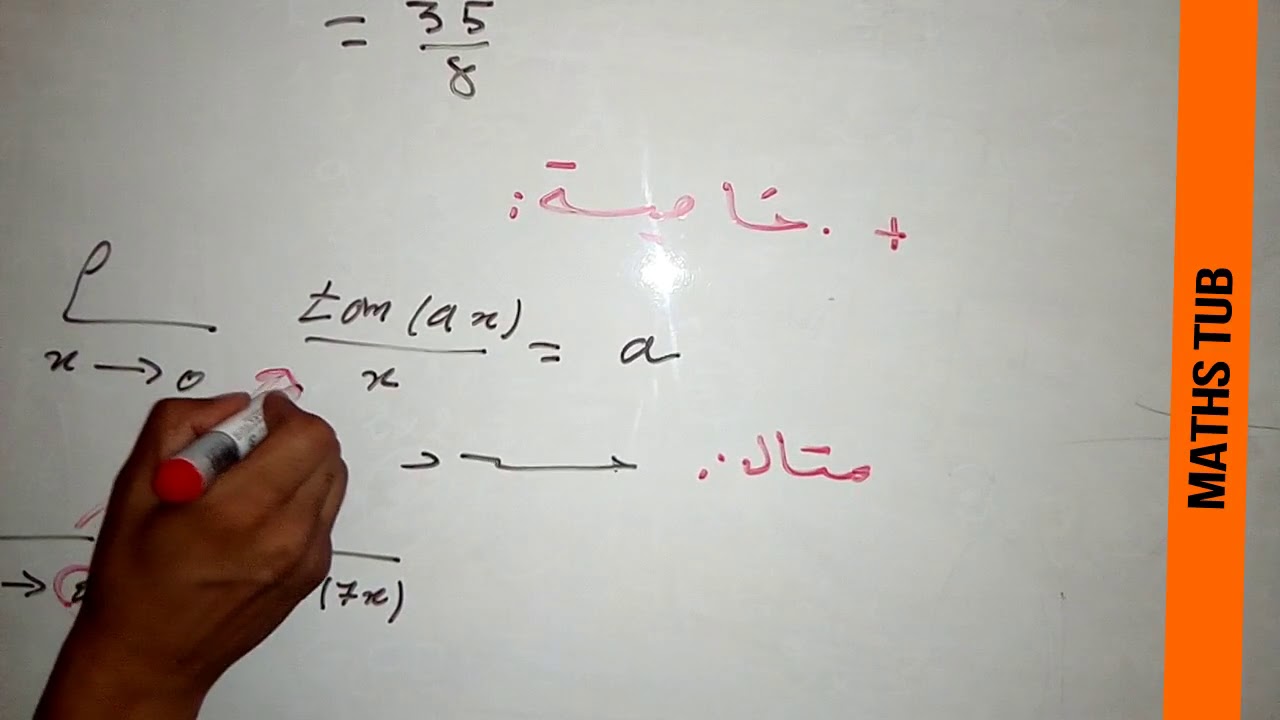 = 35/8
+ خاصية:
lim x→0 tan(ax)/x = a
مثال:
→ (7x)
MATHS TUB